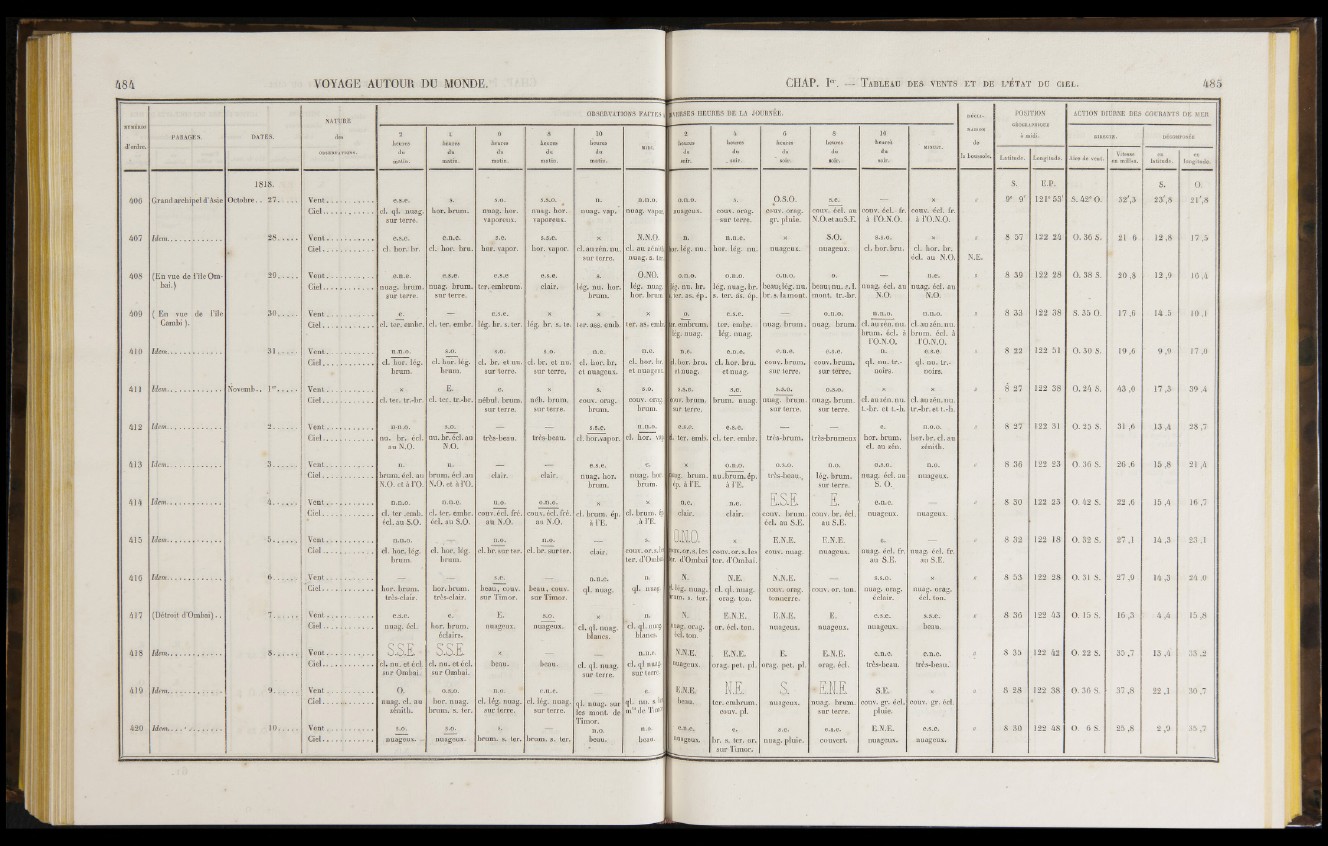 484
VOYAGE AUTOUR DU MONDE.
CHAP. Ier. — TABLEAU DES VENTS ET DE L'ÉTAT DU CIEL.
485
NUMÉROS d'ordre.
PARAGES.
DATES.
NATURE des OBSERVATIONS.
OBSERVATIONS FAITES
DIVERSES HEURES DE LA JOURNÉE.
de la boussole.
POSITION GÉOGRAPHIQUE à midi.
ACTION DIURNE DES COURANTS DE MER
2 heures du matin.
4 heures du matin.
6 heures du matin.
8 heures du matin.
10 heures du matin.
MIDI.
2 heures du soir.
4 heures du soir.
6 heures du soir.
8 heures du soir.
10 heures du soir.
MINUIT.
Latitude.
Longitude.
DIRECTE.
DÉCOMPOSÉE
Vitesse en milles.
en latitude.
en longitude.
1818.
S.
E.P.
S.
O.
406 Grand archipel d'Asie Octobre.. 27. Vent e.s.e. s. s.o. s.s.o. n. n.n.o. o.n.o. s. O.S.O. s.e. — × 9° 9' 121° 53' S. 42° O. 32',3 23',8 21',8
Ciel cl. ql. nuag. sur terre. hor. brum. nuag. hor. vaporeux. nuag. hor. vaporeux. nuag. vap. nuag. vapor. nuageux. couv. orag. sur terre. couv. orag. gr. pluie. couv. écl. au N.O. et au S.E. couv. écl. fr. à l'O.N.O. couv. écl. fr. à l'O.N.O.
407 Idem 28 Vent e.s.e. e.n.e. s.e. s.s.e. × N.N.O. n. n.n.e. × S.O. s.s.o. × N.E. 8 57 122 24 O. 36 S. 21 6 12 ,8 17 ,5
Ciel cl. hor. br. cl. hor. bru. hor. vapor. hor. vapor. cl. au zén. nu. sur terre. cl. au zénith nuag. s. te. hor. lég. nu. hor. lég. nu. nuageux. nuageux. cl. hor. bru. cl. hor. br. écl. au N.O.
408 (En vue de l'île Ombai.) 29 Vent o.n.o. e.s.e. e.s.e e.s.e. s. O.NO. o.n.o. o.n.o. o.n.o. o. — n.e. 8 39 122 28 O. 38 S. 20 ,8 12 ,9 16 ,4
Ciel nuag. brum. sur terre. nuag. brum. sur terre. ter. embrum. clair. lég. nu. hor. brum. lég. nuag. hor. brum. lég. nu. br. s. ter. as. ép. lég. nuag. br. s. ter. as. ép. beau; lég. nu. br. s. la mont. beau; nu. e. l. mont. tr.-br. nuag. écl. au N.O. nuag. écl. au N.O.
409 (En vue de l'île Combi). 30 Vent e. — e.s.e. × × × o. e.s.e. — o.n.o. n.n.o. n.n.o. 8 33 122 38 S. 35 O. 17 ,6 14 ,5 10 ,1
Ciel cl. ter. embr. cl. ter. embr. lég. br. s. ter. lég. br. s. te. ter. ass. emb. ter. as. emb. or. embrum. lég. nuag. ter. embr. lég. nuag. nuag. brum. nuag. brum. cl. au zén. nu. brum. écl. à l'O.N.O. cl. au zén. nu. brum. écl. à l'O.N.O.
410 Idem 31 Vent n.n.o. s.o. s.o. s.o. n.e. n.o. n.e. e.n.e. e.n.e. e.s.e. n. e.s.e. 8 22 122 51 O. 30 S. 19 ,6 9 ,9 17 ,0
Ciel cl. hor. lég. brum. cl. hor. lég. brum. cl. br. et nu. sur terre. cl. br. et nu. sur terre. cl. hor. br. et nuageux. cl. hor. br. et nuageux. cl. hor. bru. et nuag. cl. hor. bru. et nuag. couv. brum. sur terre. couv. brum. sur terre. ql. nu. tr.-noirs. ql. nu. tr.-noirs.
411 Idem Novemb.. 1er Vent × E. e. × s. s.o. s.s.e. s.e. s.s.o. o.s.o. × × 8 27 122 38 O. 24 S. 43 ,6 17 ,5 39 ,4
Ciel cl. ter. tr.-br. cl. ter. tr.-br. nébul. brum. sur terre. néb. brum. sur terre. couv. orag. brum. couv. orag. brum. couv. brum. sur terre. brum. nuag. nuag. brum. sur terre. nuag. brum. sur terre. cl. au zén. nu. t.-br. et t.-h. cl. au zén. nu. tr.-br. et t.-h.
412 Idem 2 Vent n.n.o. s.o. — — s.s.e. n.n.o. e.s.e. e.s.e. — — e. n.n.o. 8 27 122 31 O. 25 S. 31 ,6 13 ,4 28 ,7
Ciel nu. br. écl. au N.O. nu. br. écl. au N.O. très-beau. très-beau. cl. hor. vapor. cl. hor. vap. cl. ter. emb. cl. ter. embr. très-brum. très-brumeux hor. brum. cl. au zén. hor. br. cl. au zénith.
413 Idem 3 Vent n. n. — — e.s.e. e. × o.n.o. o.s.o. n.o. o.s.o. n.o. 8 36 122 23 O. 36 S. 26 ,6 15 ,8 21 ,4
Ciel brum. écl. au N.O. et à l'O. brum. écl. au N.O. et à l'O. clair. clair. nuag. hor. brum. nuag. hor. brum. nuag. brum. ép. à l'E. nu. brum. ép. à l'E. très-beau. lég. brum. sur terre. nuag. écl. au S. O. nuageux.
414 Idem 4 Vent n.n.o. o.n.o. n.o. o.n.o. × × n.e. n.e. E.S.E. E. e.n.e. — 8 30 122 23 O. 42 S. 22 ,6 15 ,4 16 ,7
Ciel cl. ter. emb. écl. au S.O. cl. ter. embr. écl. au S.O. couv. écl. fré. au N.O. couv. écl. fré. au N.O. cl. brum. ép. à l'E. cl. brum. ép. à l'E. clair. clair. couv. brum. écl. au S.E. couv. br. écl. au S.E. nuageux. nuageux.
415 Idem 5 Vent n.n.o. — n.o. n.o. — s. O.N.O. × E.N.E. E.N.E. e. — 8 32 122 18 O. 32 S. 27 ,1 14 ,3 23 ,1
Ciel cl. hor. lég. brum. cl. hor. lég. brum. cl. br. sur ter. cl. br. sur ter. clair. couv. or. s. les ter. d'Ombai couv. or. s. les ter. d'Ombai couv. or. s. les ter. d'Ombai. couv. nuag. nuageux. nuag. écl. fr. au S.E. nuag. écl. fr. au S.E.
416 Idem 6 Vent — — s.e. — n.n.e. n. N. N.E. N.N.E. — s.s.o. × 8 53 122 28 O. 31 S. 27 ,9 14 ,3 24 ,0
Ciel hor. brum. très-clair. hor. brum. très-clair. beau, couv. sur Timor. beau, couv. sur Timor. ql. nuag. ql. nuag. cl. lég. nuag. brum. s. ter. cl. ql. nuag. orag. ton. couv. orag. tonnerre. couv. or. ton. nuag. orag. éclair. nuag. orag. écl. ton.
417 (Détroit d'Ombai) 7 Vent e.s.e. e. E. s.o. × n. N. E.N.E. E.N.E. E. e.s.e. s.s.e. 8 36 122 43 O. 15 S. 16 ,3 4 ,4 15 ,8
Ciel nuag. écl. hor. brum. éclairs. nuageux. nuageux. cl. ql. nuag. blancs. cl. ql. nuag. blancs. nuag. orag. écl. ton. or. écl. ton. nuageux. nuageux. nuageux. beau.
418 Idem 8 Vent S.S.E. S.S.E. × — — n.n.e. N.N.E. E.N.E. E. E.N.E. e.n.e. e.n.e. 8 35 122 42 O. 22 S. 35 ,7 13 ,4 33 ,2
Ciel cl. nu. et écl. sur Ombai. cl. nu. et écl. sur Ombai. beau. beau. cl. ql. nuag. sur terre. cl. ql. nuag. sur terre. nuageux. orag. pet. pl. orag. pet. pl. orag. écl. très-beau. très-beau.
419 Idem 9 Vent O. o.s.o. n.e. e.n.e. — e. E.N.E. N.E. S. E.N.E. S.E. × 8 28 122 38 O. 36 S. 37 ,8 22 ,1 30 ,7
Ciel nuag. cl. au zénith. hor. nuag. brum. s. ter. cl. lég. nuag. sur terre. cl. lég. nuag. sur terre. ql. nuag. sur les mont. de Timor. ql. nu. s. les mts de Timor beau. ter. embrum. couv. pl. nuageux. nuag. brum. sur terre. couv. gr. écl. pluie. couv. gr. écl.
420 Idem 10 Vent s.o. s.o. s. — n.o. n.o. e.s.e. e. s.e. e.s.e. E.N.E. e.s.e. 8 30 122 48 O. 6 S. 25 ,8 2 ,9 35 ,7
Ciel nuageux. nuageux. brum. s. ter. brum. s. ter. beau. beau. nuageux. br. s. ter. or. sur Timor. nuag. pluie. couvert. nuageux. nuageux.